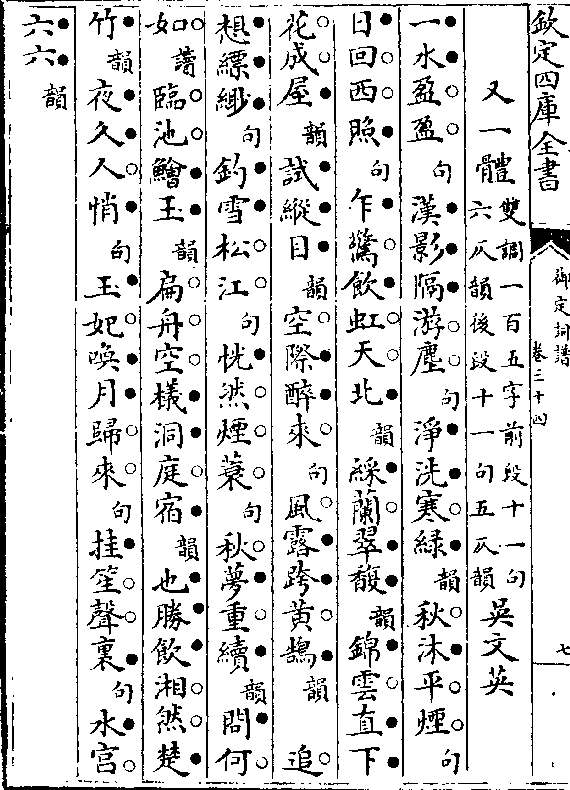 欽定四庫全書 御定詞譜 卷三十四 七
又一體 雙調一百五字前段十一句六仄韻後段十一句五仄韻 吳文英
一水盈盈句漢影隔游塵句淨洗寒綠韻秋沐平煙句
日回西照句乍驚飲虹天北韻綵蘭翠馥韻錦雲直下
花成屋韻試縱目韻空際醉來句風露跨黃鵠韻 追
想縹緲句釣雪松江句恍然煙蓑句秋夢重續韻問何
如讀臨池鱠玉韻扁舟空檥洞庭宿韻也勝飲湘然楚
竹韻夜久人悄句玉妃喚月歸來句挂笙聲裏句水宮
六六韻